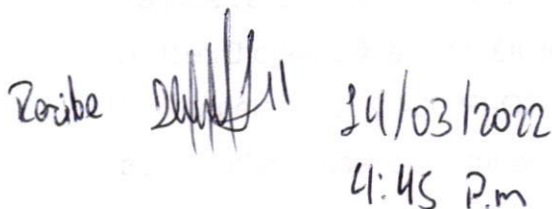 Recibe 14/03/2022
4:45 P.m